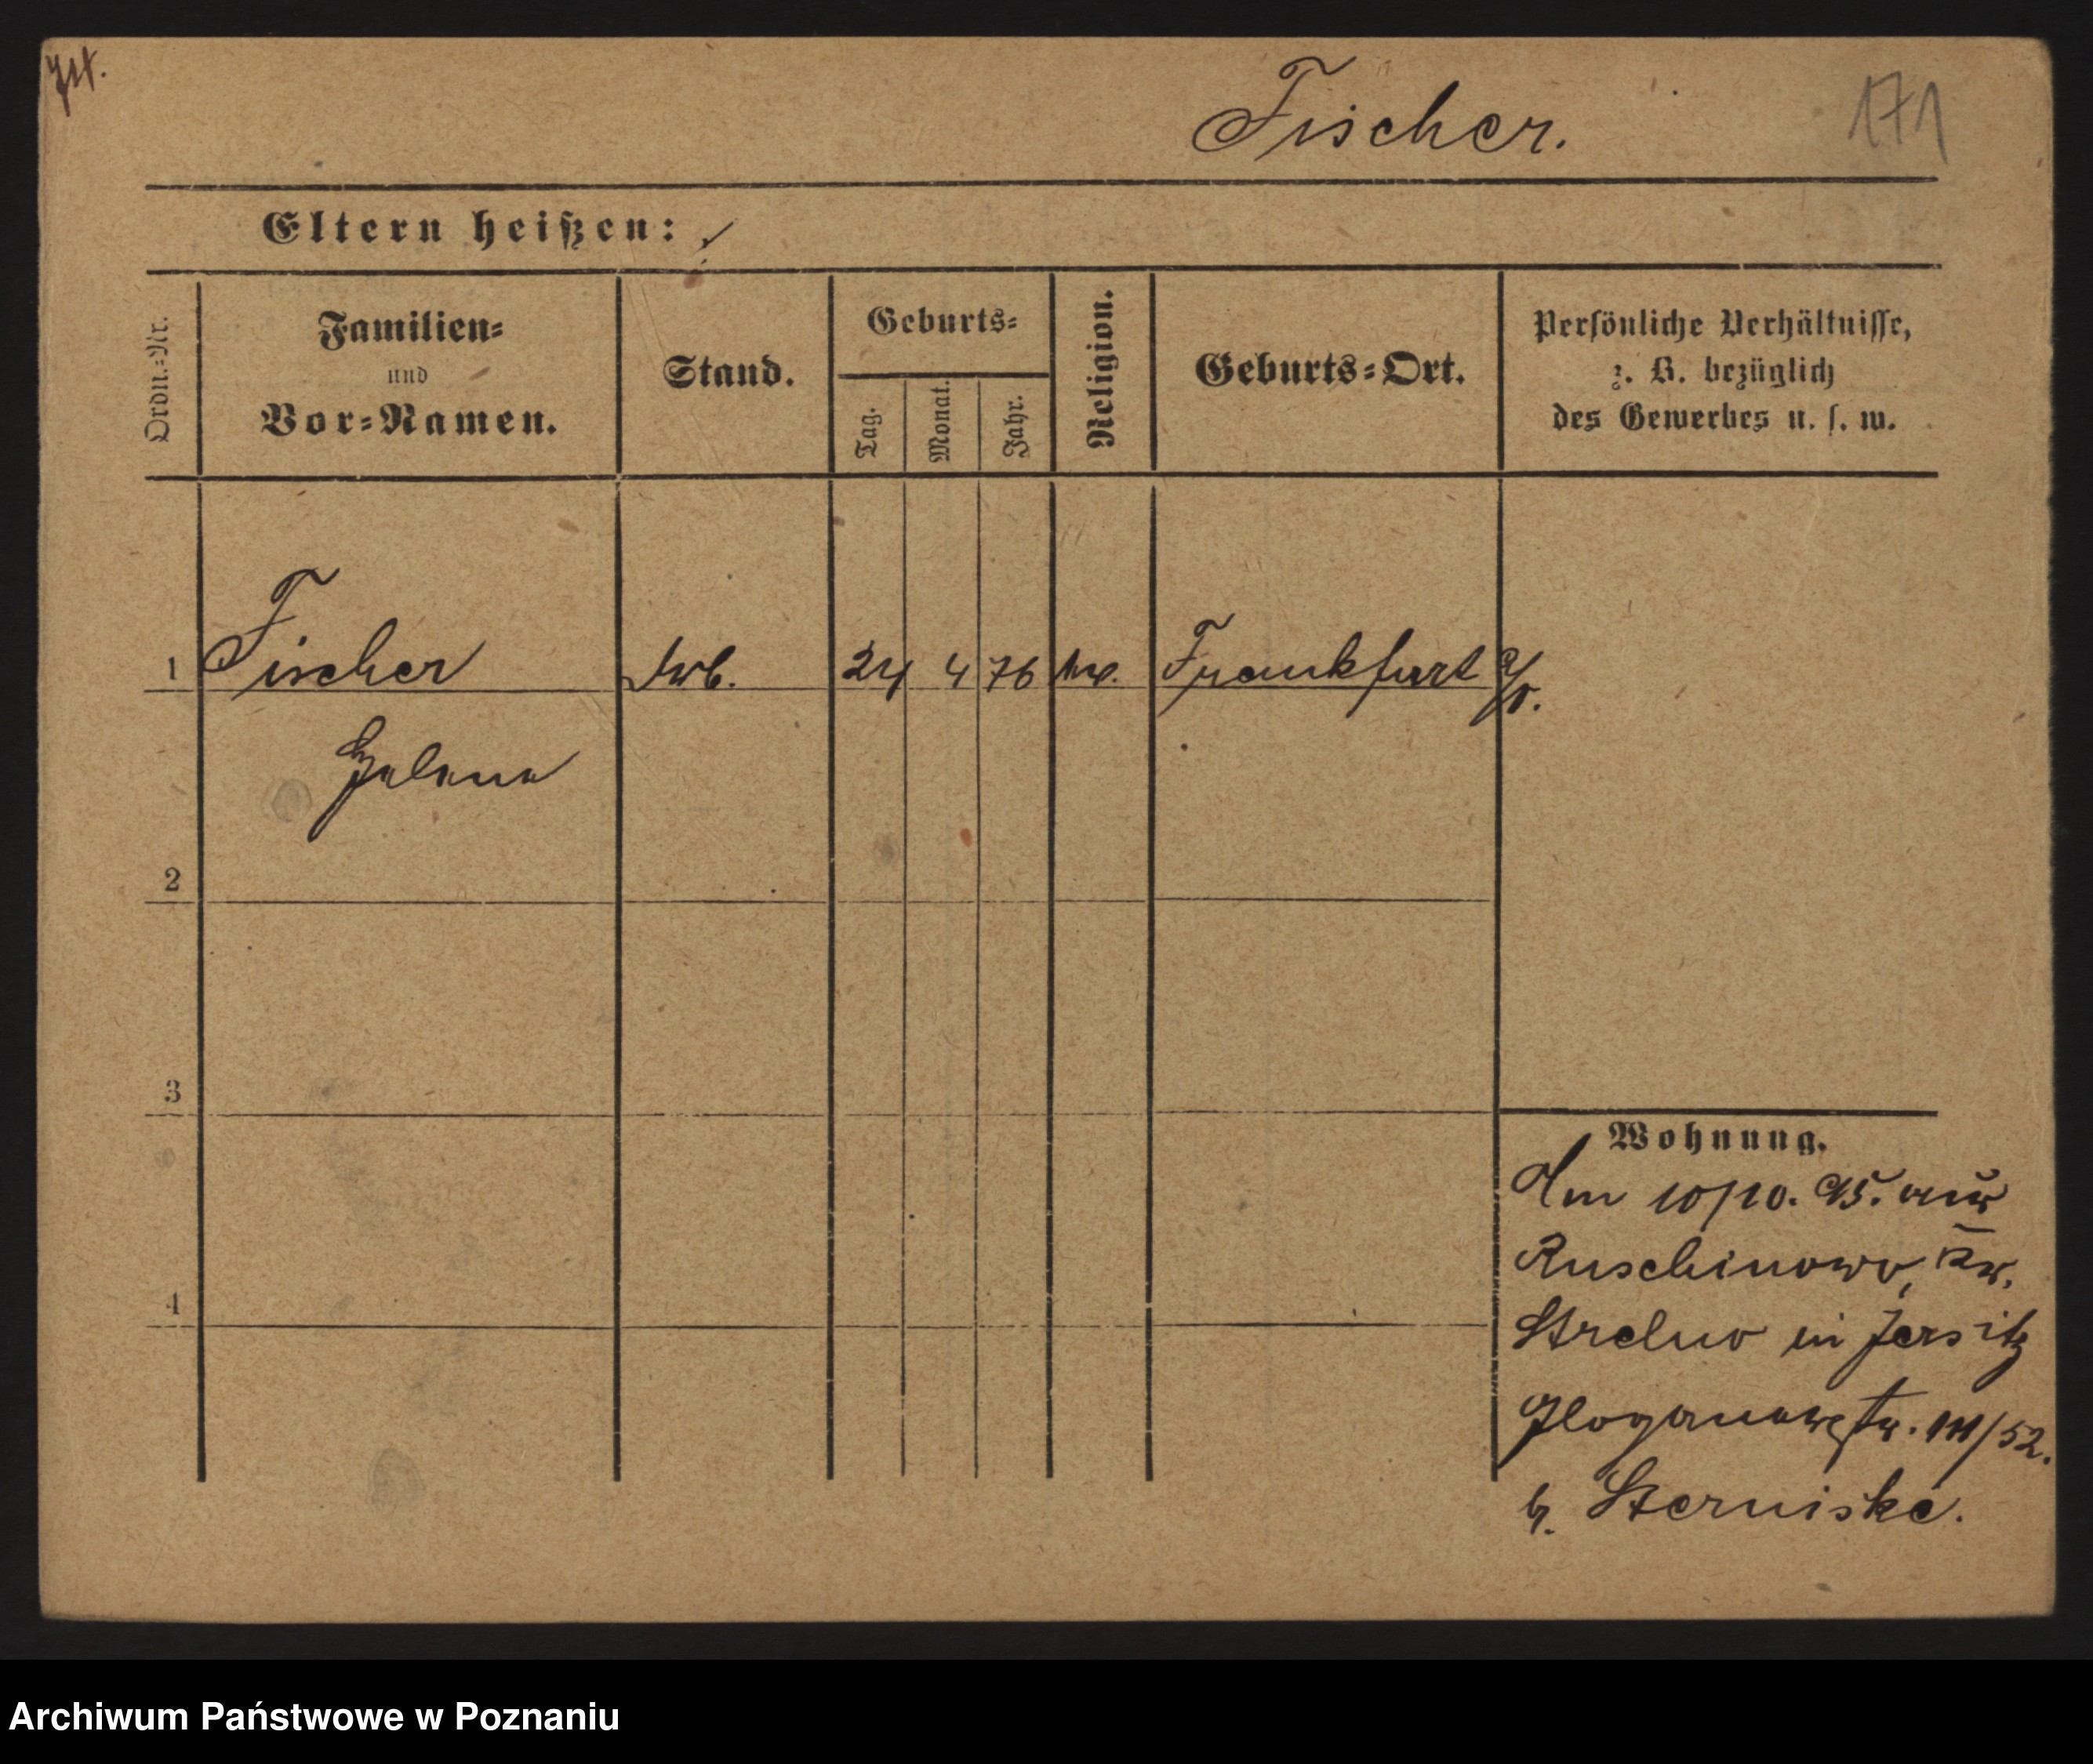 Fischer.
171
Eltern heißen:
Ordn.-Nr.
Familien-
und
Vor-Namen.
Stand.
Geburts-
Tag.
Monat.
Jahr.
Religion.
Geburts-Ort.
Persönliche Verhältnisse,
z. B. bezüglich
des Gewerbes u. s. w.
1 Fischer 24 4 76 Frankfurt a/O.
Helene
2
3
4
Wohnung.
Am 10/10. 95. aus
Ruschinowo, Kr.
Strelno in Jersitz
b. Sterniske.
Archiwum Państwowe w Poznaniu